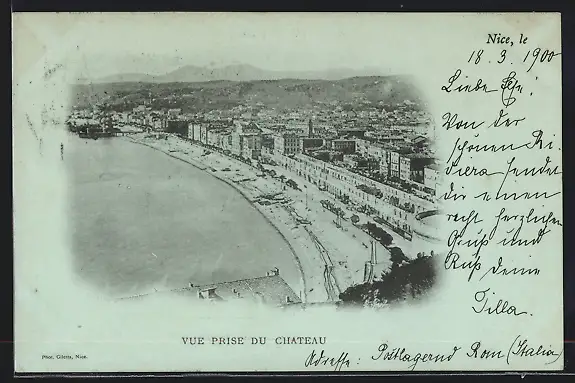 Nice, le
18. 3. 1900
Liebe Else!
Von der
schönen Ri-
viera sendet
dir einen
recht herzlichen
Gruß und
Kuß deine
Tilla.
VUE PRISE DU CHATEAU
Adresse: Postlagernd Rom (Italia)
Phot. Giletta, Nice.